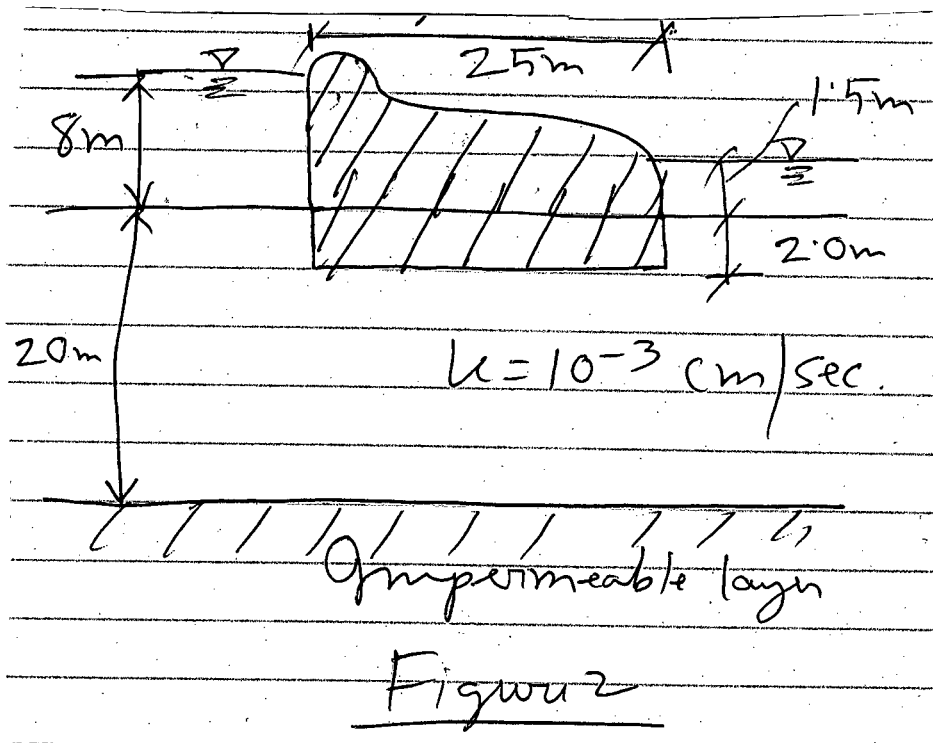 25m
1.5m
8m
2.0m
20m
k=10-3 cm/sec.
Impermeable layer
Figure 2